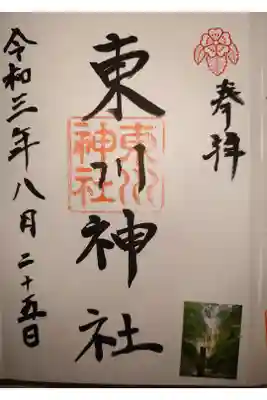 奉拝
東川神社
東川神社
令和三年八月二十五日